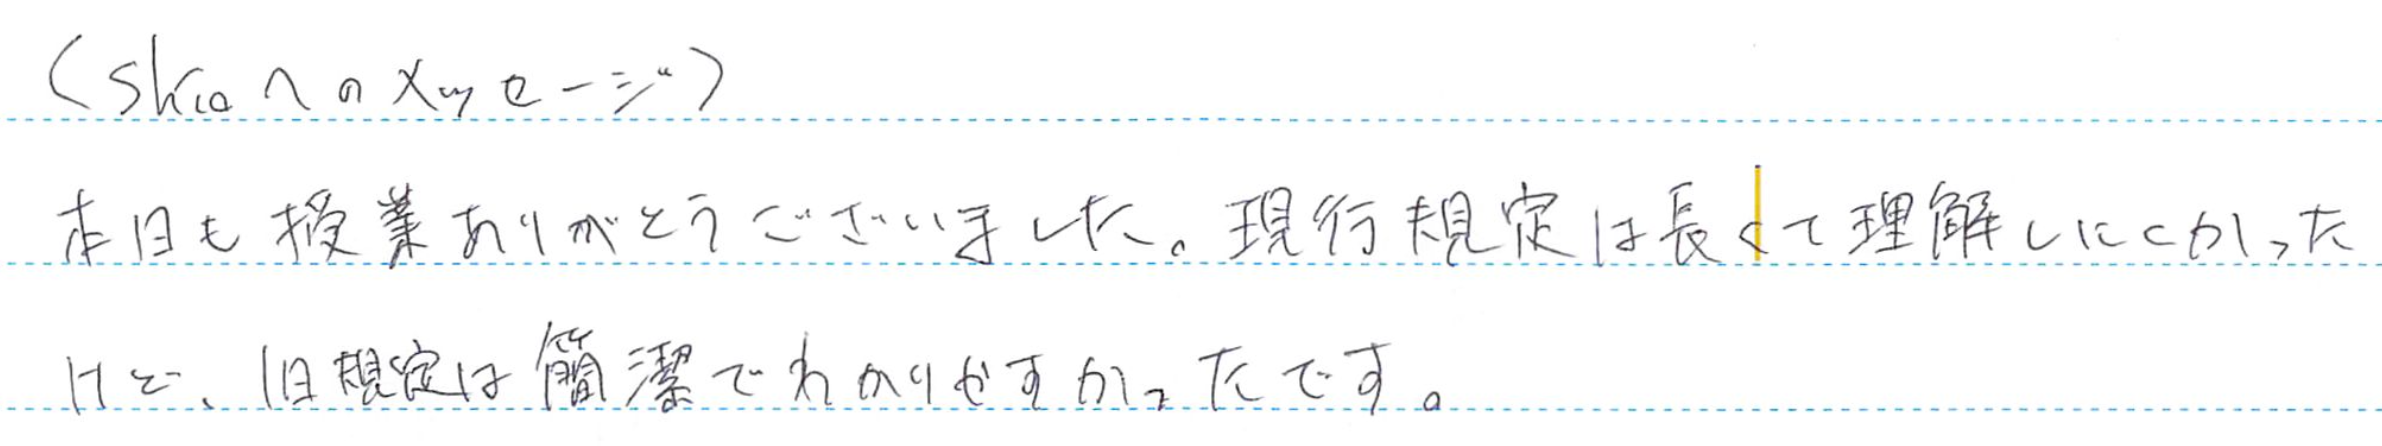 (Skioへのメッセージ)
本日も授業ありがとうございました。現行規定は長くて理解しにくかった
けど、旧規定は簡潔でわかりやすかったです。